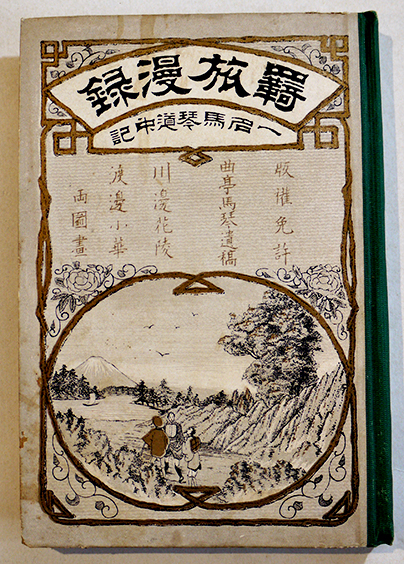 羇旅漫録
一名馬琴道中記
版權免許
曲亭馬琴遺稿
川邊花陵
渡邊小華
両圖畫